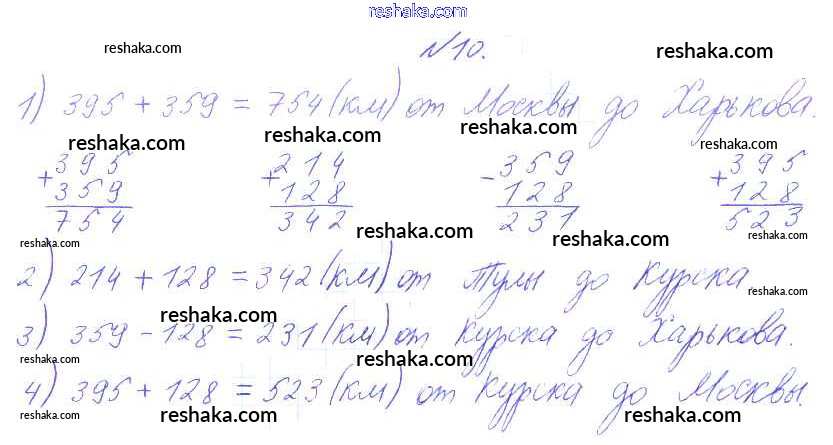 reshaka.com
reshaka.com №10. reshaka.com
1) 395 + 359 = 754 (км) от Москвы до Харькова.
reshaka.com reshaka.com reshaka.com reshaka.com
+395 +214 -359 +395
359 128 128 128
754 342 231 523
reshaka.com reshaka.com reshaka.com reshaka.com
2) 214 + 128 = 342 (км) от Тулы до Курска
reshaka.com reshaka.com reshaka.com
3) 359 - 128 = 231 (км) от Курска до Харькова.
reshaka.com reshaka.com
4) 395 + 128 = 523 (км) от Курска до Москвы.
reshaka.com reshaka.com reshaka.com reshaka.com